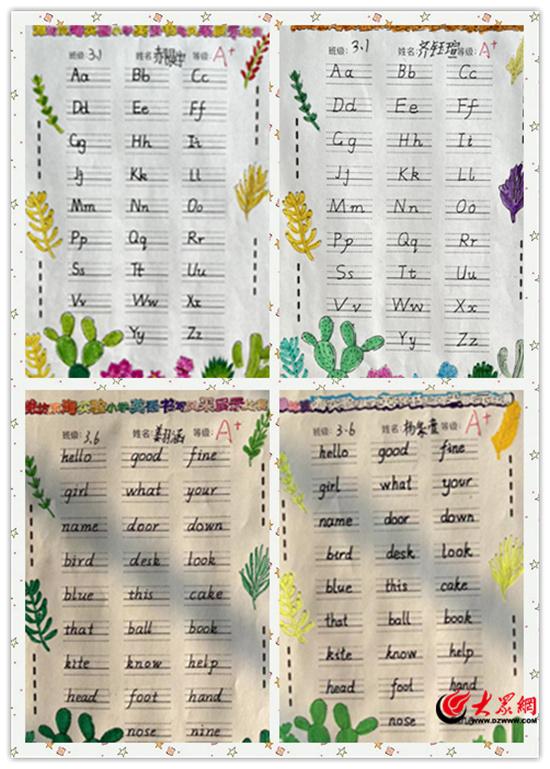 班级: 3.1 姓名: 等级: A+
Aa Bb Cc
Dd Ee Ff
Gg Hh Ii
Jj Kk Ll
Mm Nn Oo
Pp Qq Rr
Ss Tt Uu
Vv Ww Xx
Yy Zz
班级: 3.1 姓名: 齐钰瑄 等级: A+
Aa Bb Cc
Dd Ee Ff
Gg Hh Ii
Jj Kk Ll
Mm Nn Oo
Pp Qq Rr
Ss Tt Uu
Vv Ww Xx
Yy Zz
实验小学英语书写风采展示
班级: 3.6 姓名: 等级: A+
hello good fine
girl what your
name door down
bird desk look
blue this cake
that ball book
kite know help
head foot hand
nose nine
班级: 3-6 姓名: 等级: A+
hello good fine
girl what your
name door down
bird desk look
blue this cake
that ball book
kite know help
head foot hand
nose
大众网
WWW.DZWWW.COM